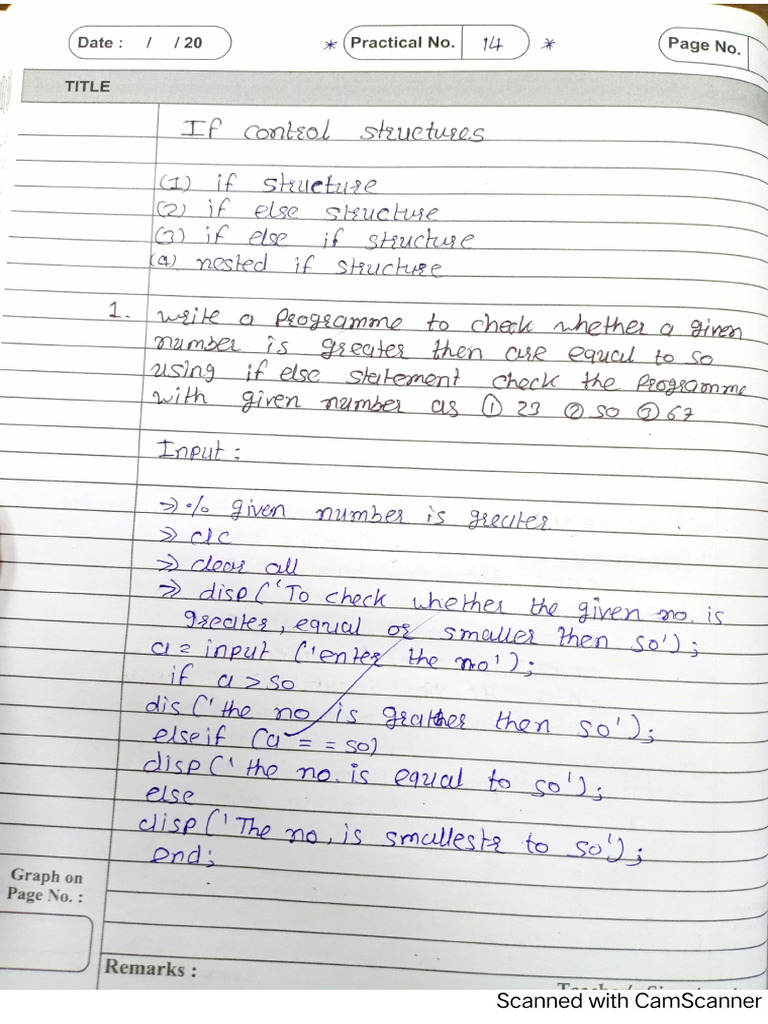 Date : / / 20
* Practical No. 14 *
Page No.
TITLE
If control structures
(1) if structure
(2) if else structure
(3) if else if structure
(4) nested if structure
1. write a programme to check whether a given
number is greater then are equal to 50
using if else statement check the programme
with given number as ① 23 ② 50 ③ 67
Input :
→ % given number is greater
→ clc
→ clear all
→ disp ('To check whether the given no. is
greater, equal or smaller then 50');
a = input ('enter the no');
if a > 50
dis (' the no is grather then 50');
elseif (a == 50)
disp (' the no. is equal to 50');
else
disp ('The no, is smallestr to 50');
end;
Graph on
Page No. :
Remarks :
Scanned with CamScanner